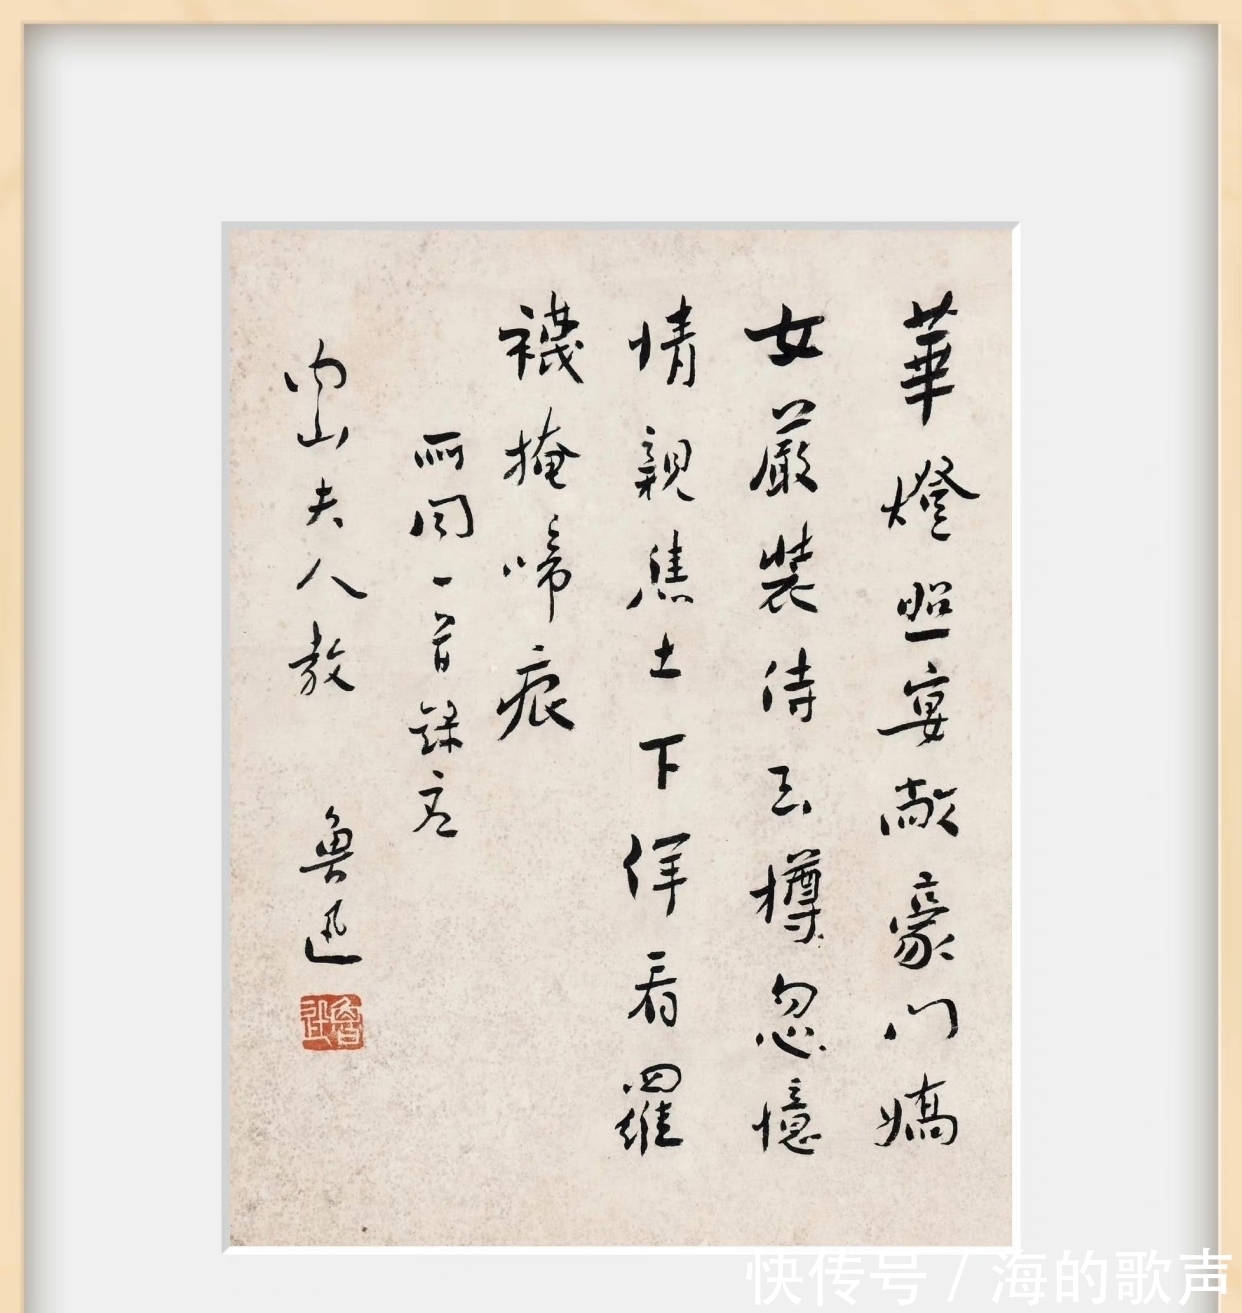 華燈照宴敞豪門嬌
女嚴裝侍玉樽忽憶
情親焦土下佯看羅
襪掩啼痕
所聞一首錄应
内山夫人教
魯迅
魯迅
快传号 / 海的歌声